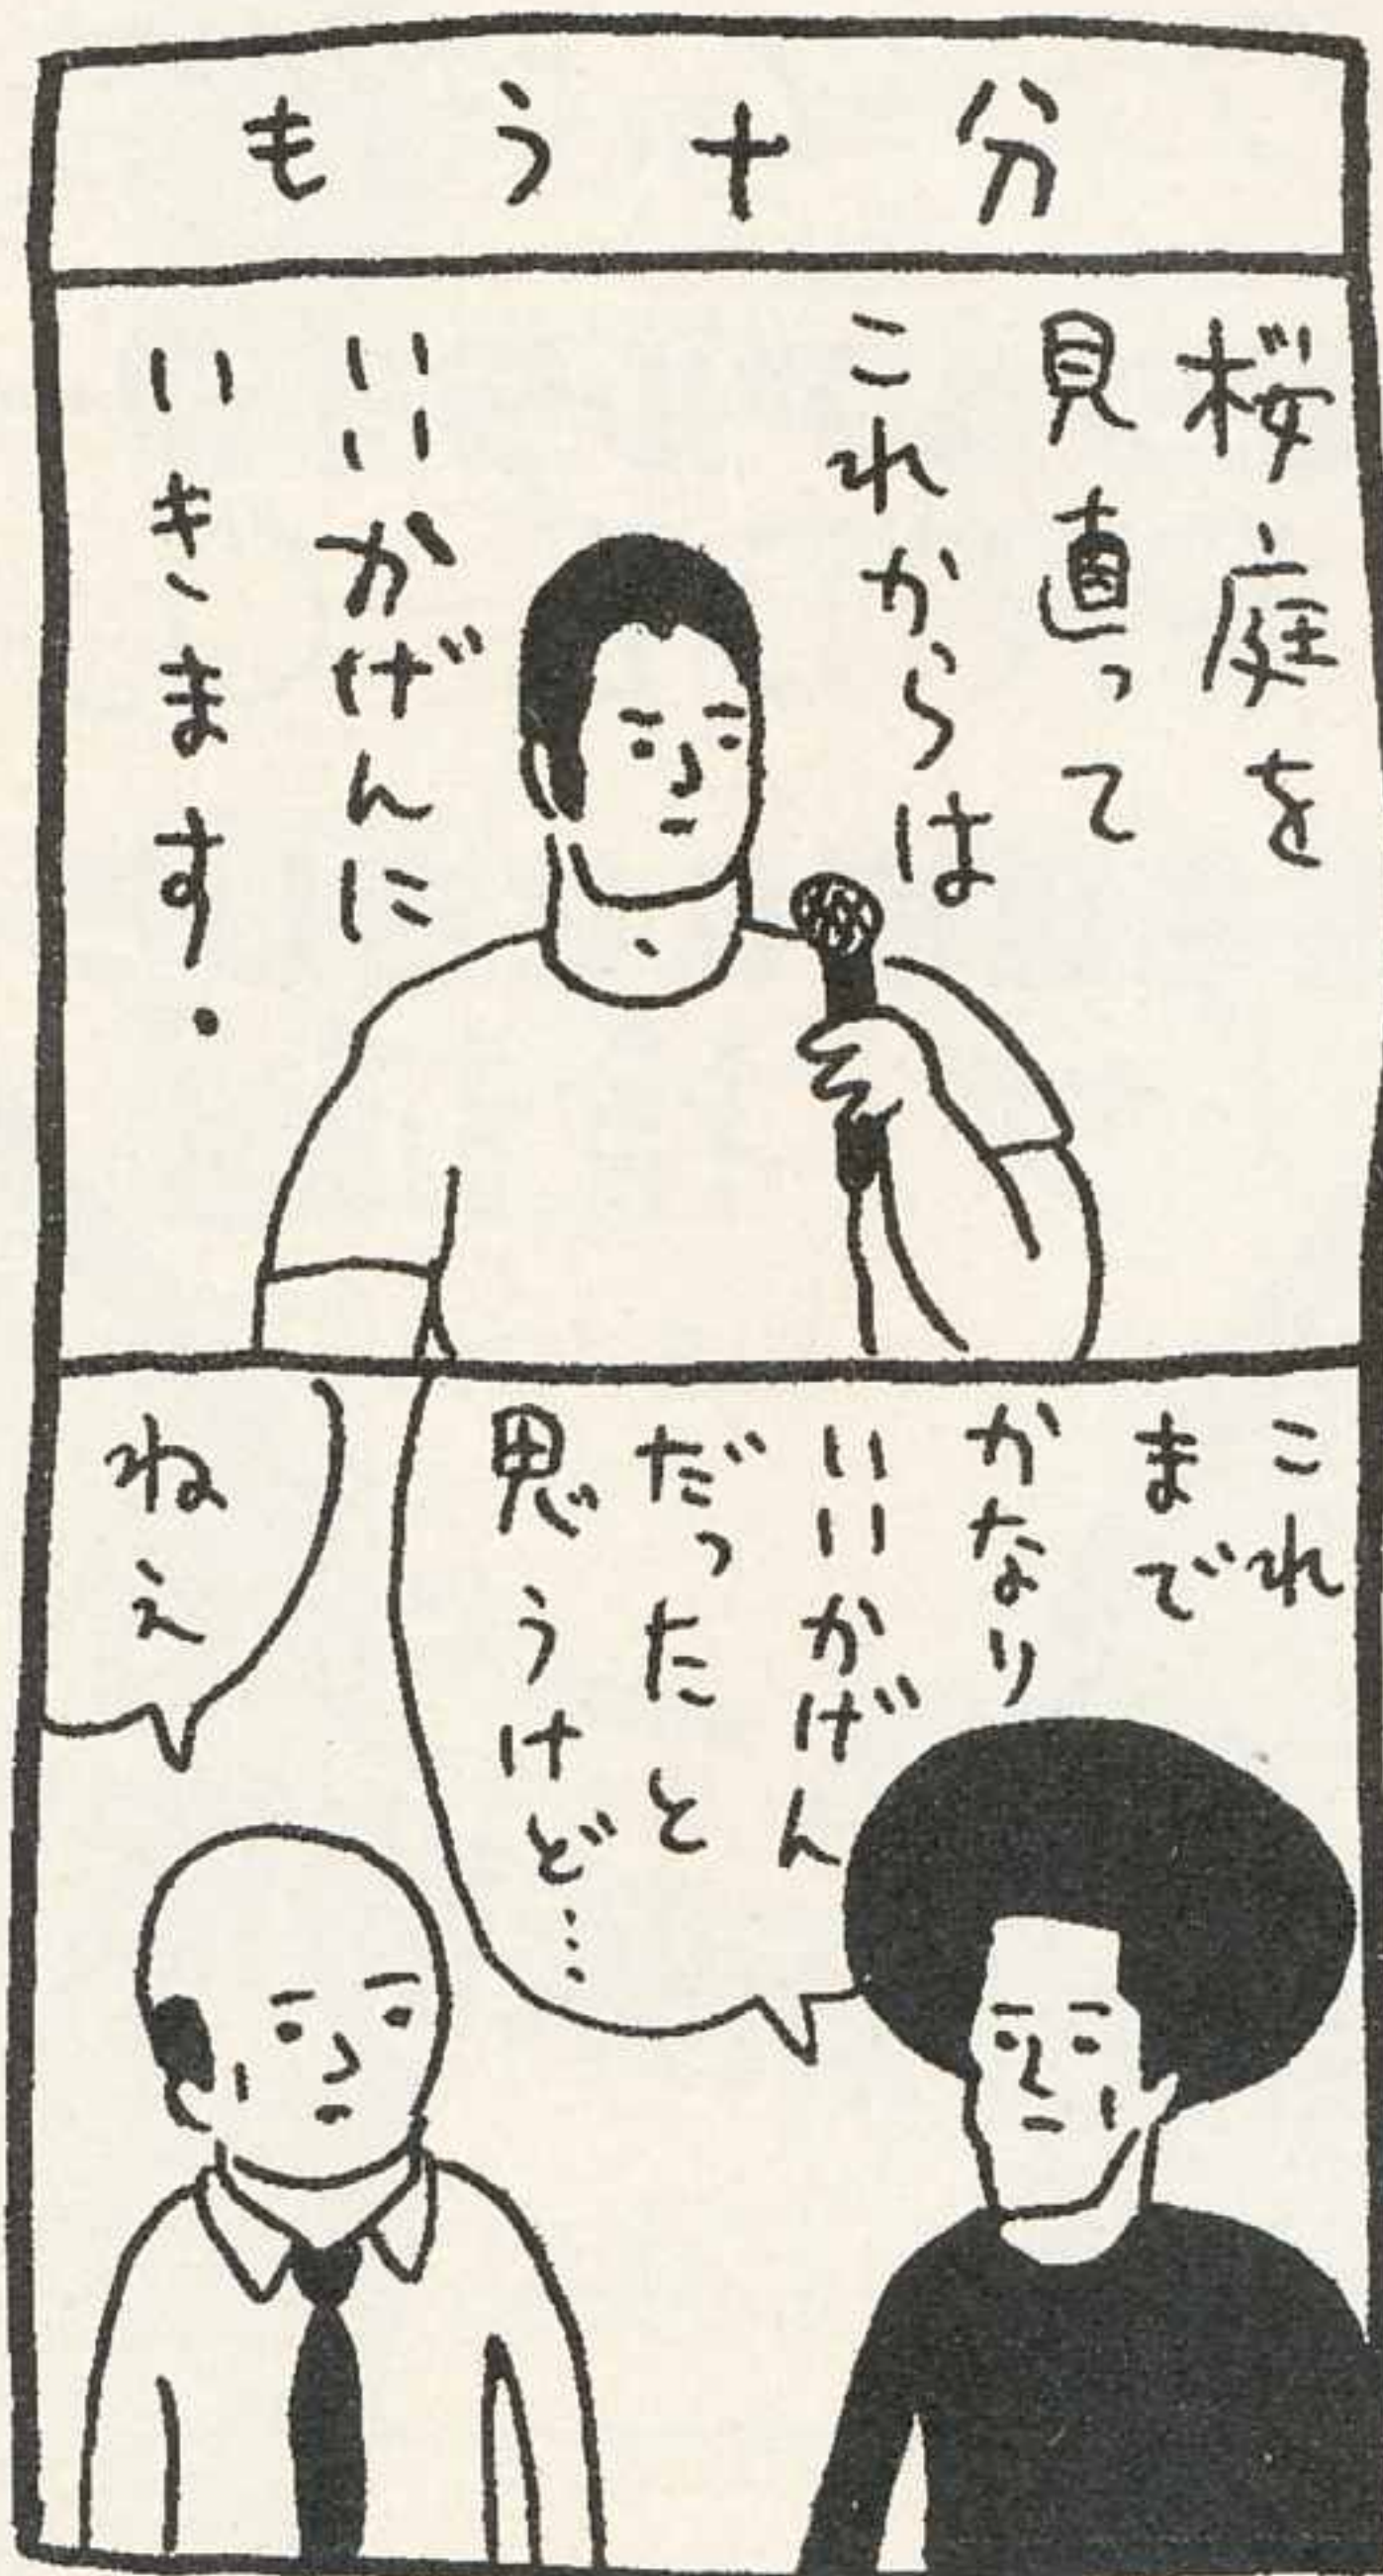 もう十分
桜庭を
見直って
これからは
いいかげんに
いきます.
これ
まで
かなり
いいかげん
だったと
思うけど…
ねえ